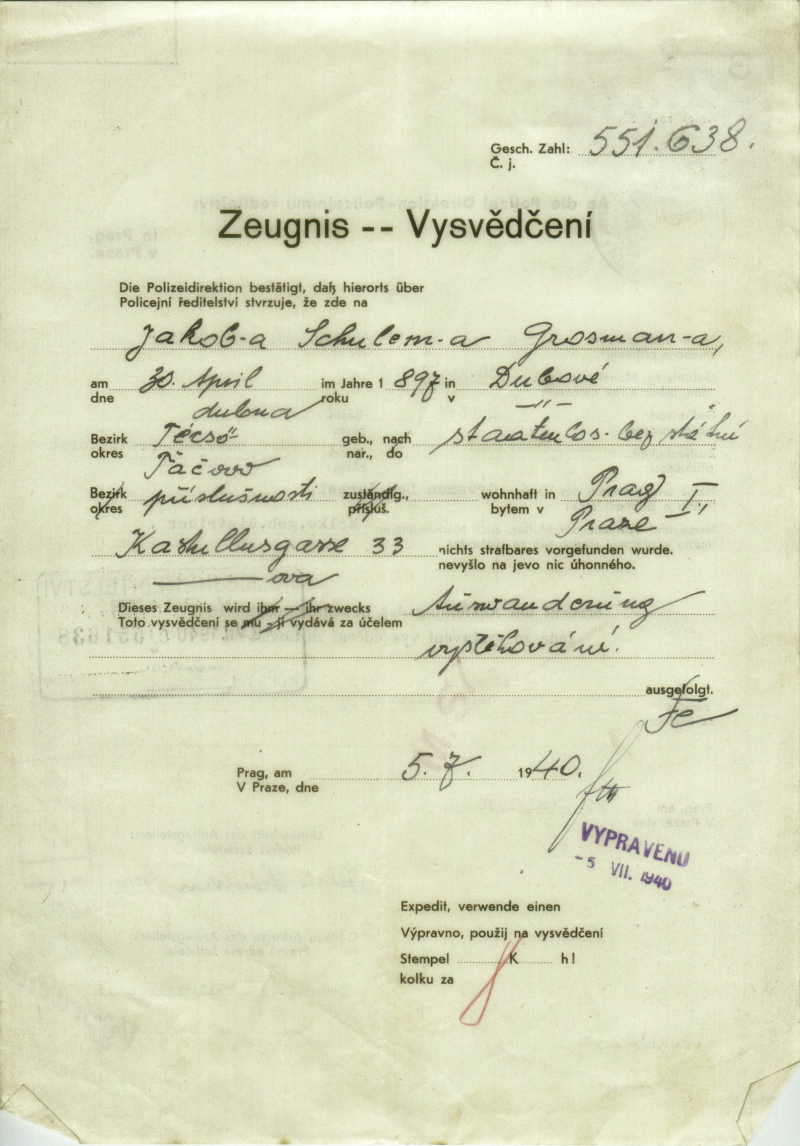 Gesch. Zahl: 551.638.
Č. j.
Zeugnis -- Vysvědčení
Die Polizeidirektion bestätigt, daß hierorts über
Policejní ředitelství stvrzuje, že zde na
Jakob-a Schulem-a Grosman-a,
am 30. April im Jahre 1 897 in Dubové
dne dubna roku v -"-
Bezirk Técső geb., nach staatenlos-bez státní
okres Táčovo nar., do
Bezirk příslušnosti zuständig., wohnhaft in Prag I.,
okres přísluš. bytem v Praze
Kastullusgasse 33 nichts strafbares vorgefunden wurde.
ova nevyšlo na jevo nic úhonného.
Dieses Zeugnis wird ihm — ihr zwecks Auswanderung
Toto vysvědčení se mu - jí vydává za účelem
vystěhování.
ausgefolgt.
Prag, am 5. 7. 1940.
V Praze, dne
VYPRAVENO
-5 VII. 1940
Expedit, verwende einen
Výpravno, použij na vysvědčení
Stempel K h!
kolku za